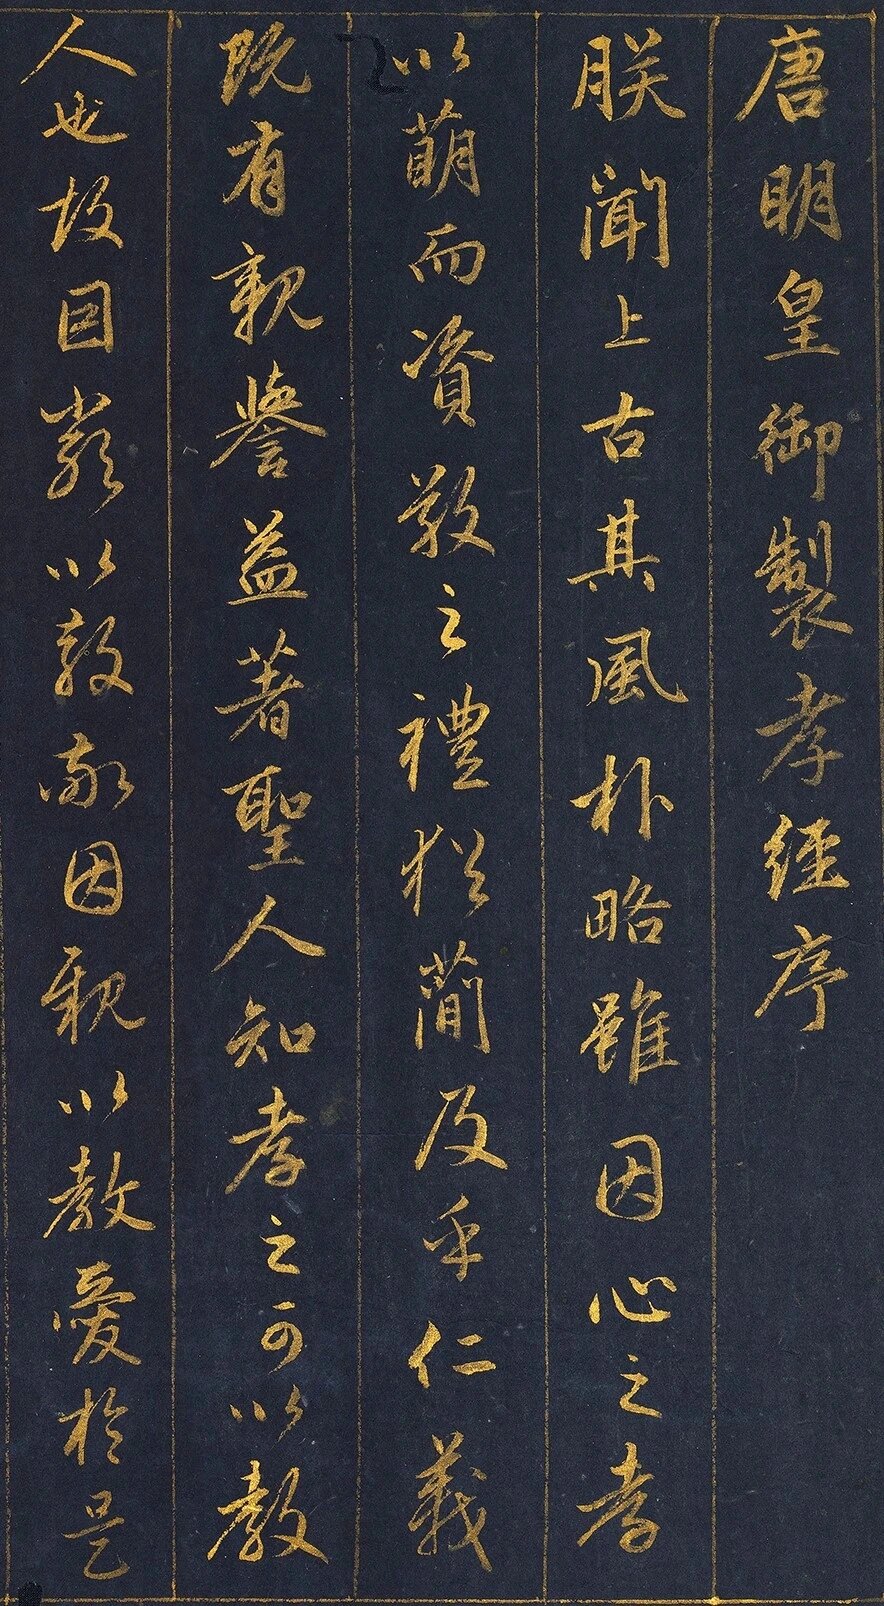 唐明皇御製孝經序
朕聞上古其風朴略雖因心之孝
以萌而資敬之禮猶簡及乎仁義
既有親譽益著聖人知孝之可以教
人也故因嚴以教敬因親以教愛於是